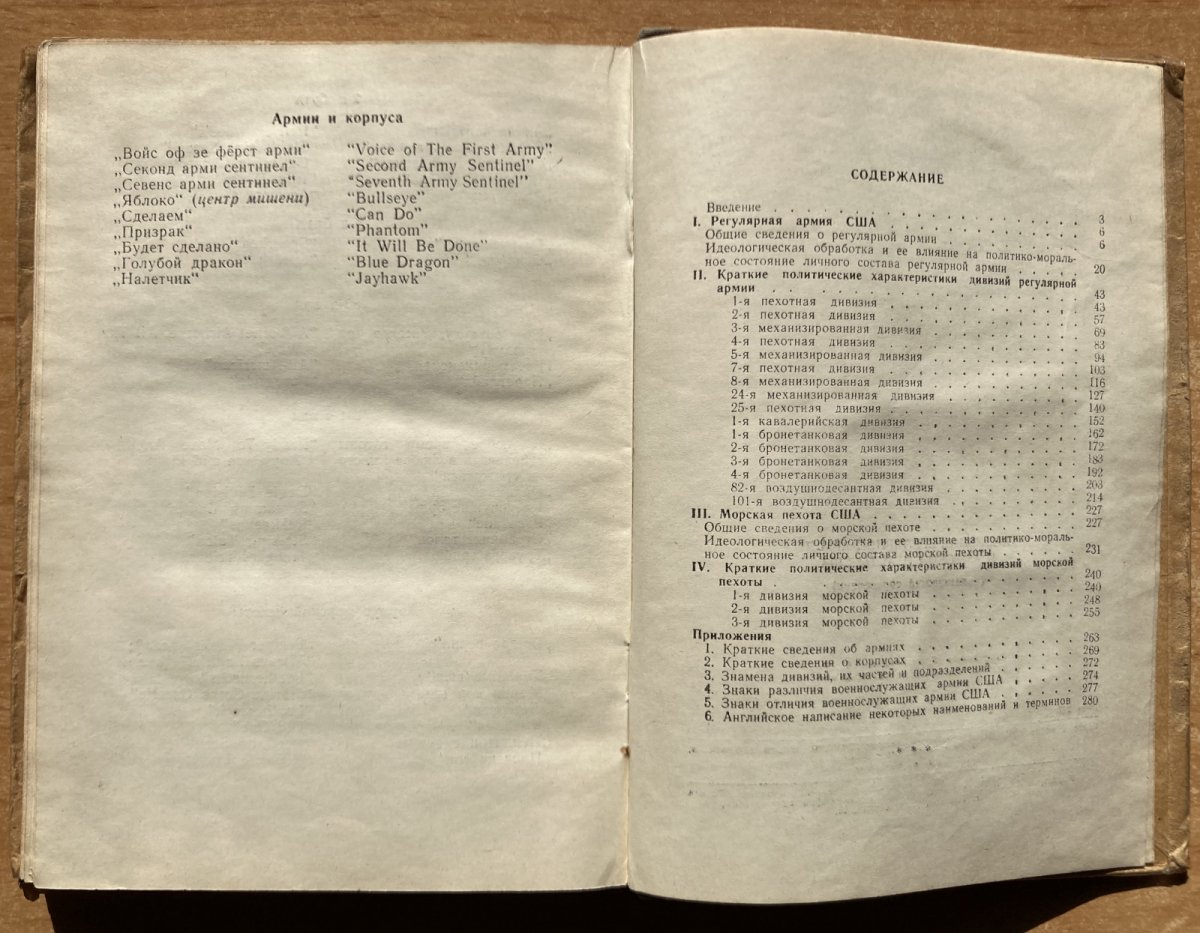 Армии и корпуса
„Войс оф зе фёрст арми“ “Voice of The First Army”
„Секонд арми сентинел“ “Second Army Sentinel”
„Севенс арми сентинел“ “Seventh Army Sentinel”
„Яблоко“ (центр мишени) “Bullseye”
„Сделаем“ “Can Do”
„Призрак“ “Phantom”
„Будет сделано“ “It Will Be Done”
„Голубой дракон“ “Blue Dragon”
„Налетчик“ “Jayhawk”
СОДЕРЖАНИЕ
Введение . . . . . . . . . . . . . . . . . . . 3
I. Регулярная армия США . . . . . . . . . . . . 6
Общие сведения о регулярной армии . . . . . . . . 6
Идеологическая обработка и ее влияние на политико-мораль-
ное состояние личного состава регулярной армии . . . . . 20
II. Краткие политические характеристики дивизий регулярной
армии . . . . . . . . . . . . . . . . . . . 43
1-я пехотная дивизия . . . . . . . . . . . . 43
2-я пехотная дивизия . . . . . . . . . . . . 57
3-я механизированная дивизия . . . . . . . . . . 69
4-я пехотная дивизия . . . . . . . . . . . . 83
5-я механизированная дивизия . . . . . . . . . . 94
7-я пехотная дивизия . . . . . . . . . . . . 103
8-я механизированная дивизия . . . . . . . . . . 116
24-я механизированная дивизия . . . . . . . . . . 127
25-я пехотная дивизия . . . . . . . . . . . . 140
1-я кавалерийская дивизия . . . . . . . . . . . 152
1-я бронетанковая дивизия . . . . . . . . . . . 162
2-я бронетанковая дивизия . . . . . . . . . . . 172
3-я бронетанковая дивизия . . . . . . . . . . . 183
4-я бронетанковая дивизия . . . . . . . . . . . 192
82-я воздушнодесантная дивизия . . . . . . . . . 203
101-я воздушнодесантная дивизия . . . . . . . . . 214
III. Морская пехота США . . . . . . . . . . . . 227
Общие сведения о морской пехоте . . . . . . . . . 227
Идеологическая обработка и ее влияние на политико-мораль-
ное состояние личного состава морской пехоты . . . . . 231
IV. Краткие политические характеристики дивизий морской
пехоты . . . . . . . . . . . . . . . . . . . 240
1-я дивизия морской пехоты . . . . . . . . . . 240
2-я дивизия морской пехоты . . . . . . . . . . 248
3-я дивизия морской пехоты . . . . . . . . . . 255
Приложения
1. Краткие сведения об армиях . . . . . . . . . . 263
2. Краткие сведения о корпусах . . . . . . . . . . 269
3. Знамена дивизий, их частей и подразделений . . . . . 272
4. Знаки различия военнослужащих армии США . . . . . 274
5. Знаки отличия военнослужащих армии США . . . . . 277
6. Английское написание некоторых наименований и терминов 280
* * *